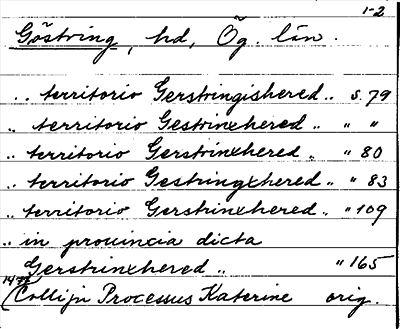 1-2
Göstring, hd, Ög. län.
.. territorio Gerstringishered.. s. 79
.. territorio Gestrinxhered .. " "
.. territorio Gerstrinxhered .. " 80
.. territorio Gestringxhered .. " 83
.. territorio Gerstrinxhered .. " 109
.. in prouincia dicta
Gerstrinxhered .. " 165
(Collijn Processus Katerine orig.